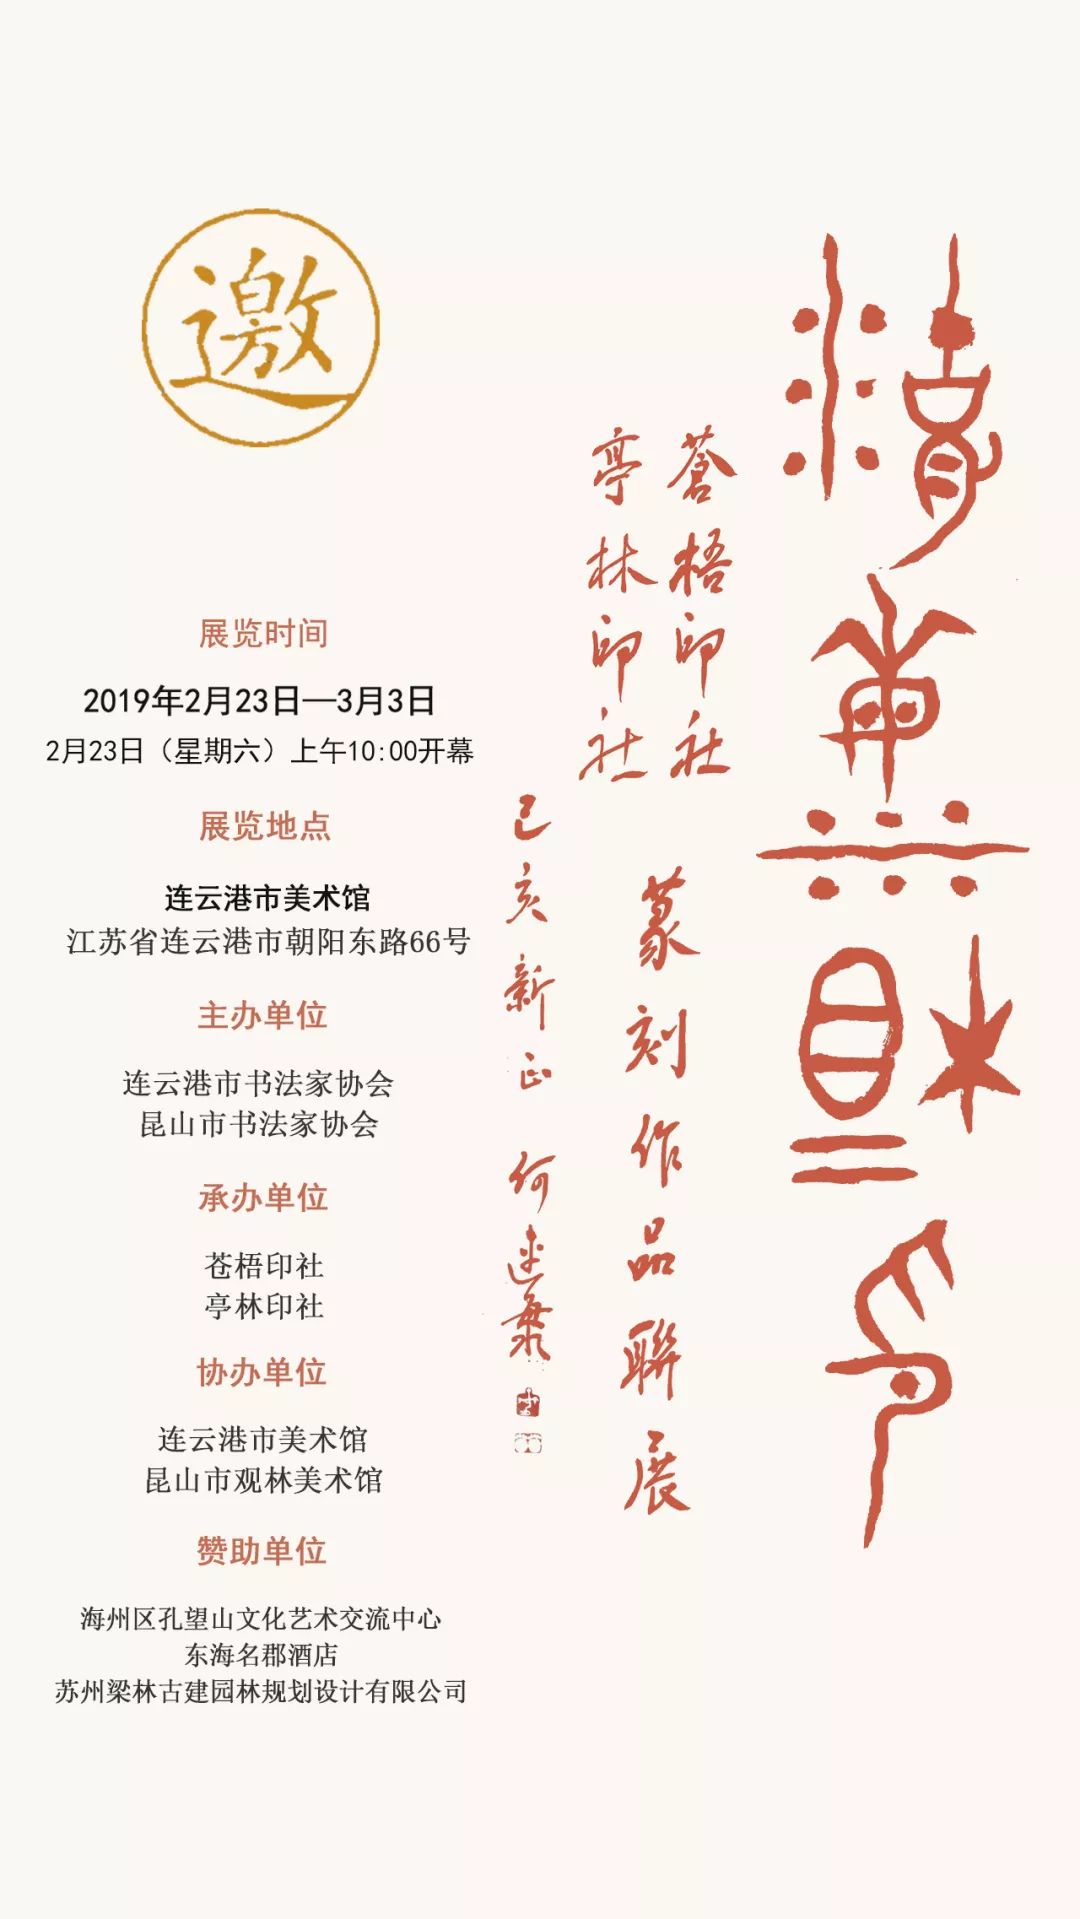 蒼梧印社
亭林印社
篆刻作品聯展
己亥新正
邀
展览时间
2019年2月23日—3月3日
2月23日（星期六）上午10:00开幕
展览地点
连云港市美术馆
江苏省连云港市朝阳东路66号
主办单位
连云港市书法家协会
昆山市书法家协会
承办单位
苍梧印社
亭林印社
协办单位
连云港市美术馆
昆山市观林美术馆
赞助单位
海州区孔望山文化艺术交流中心
东海名郡酒店
苏州梁林古建园林规划设计有限公司